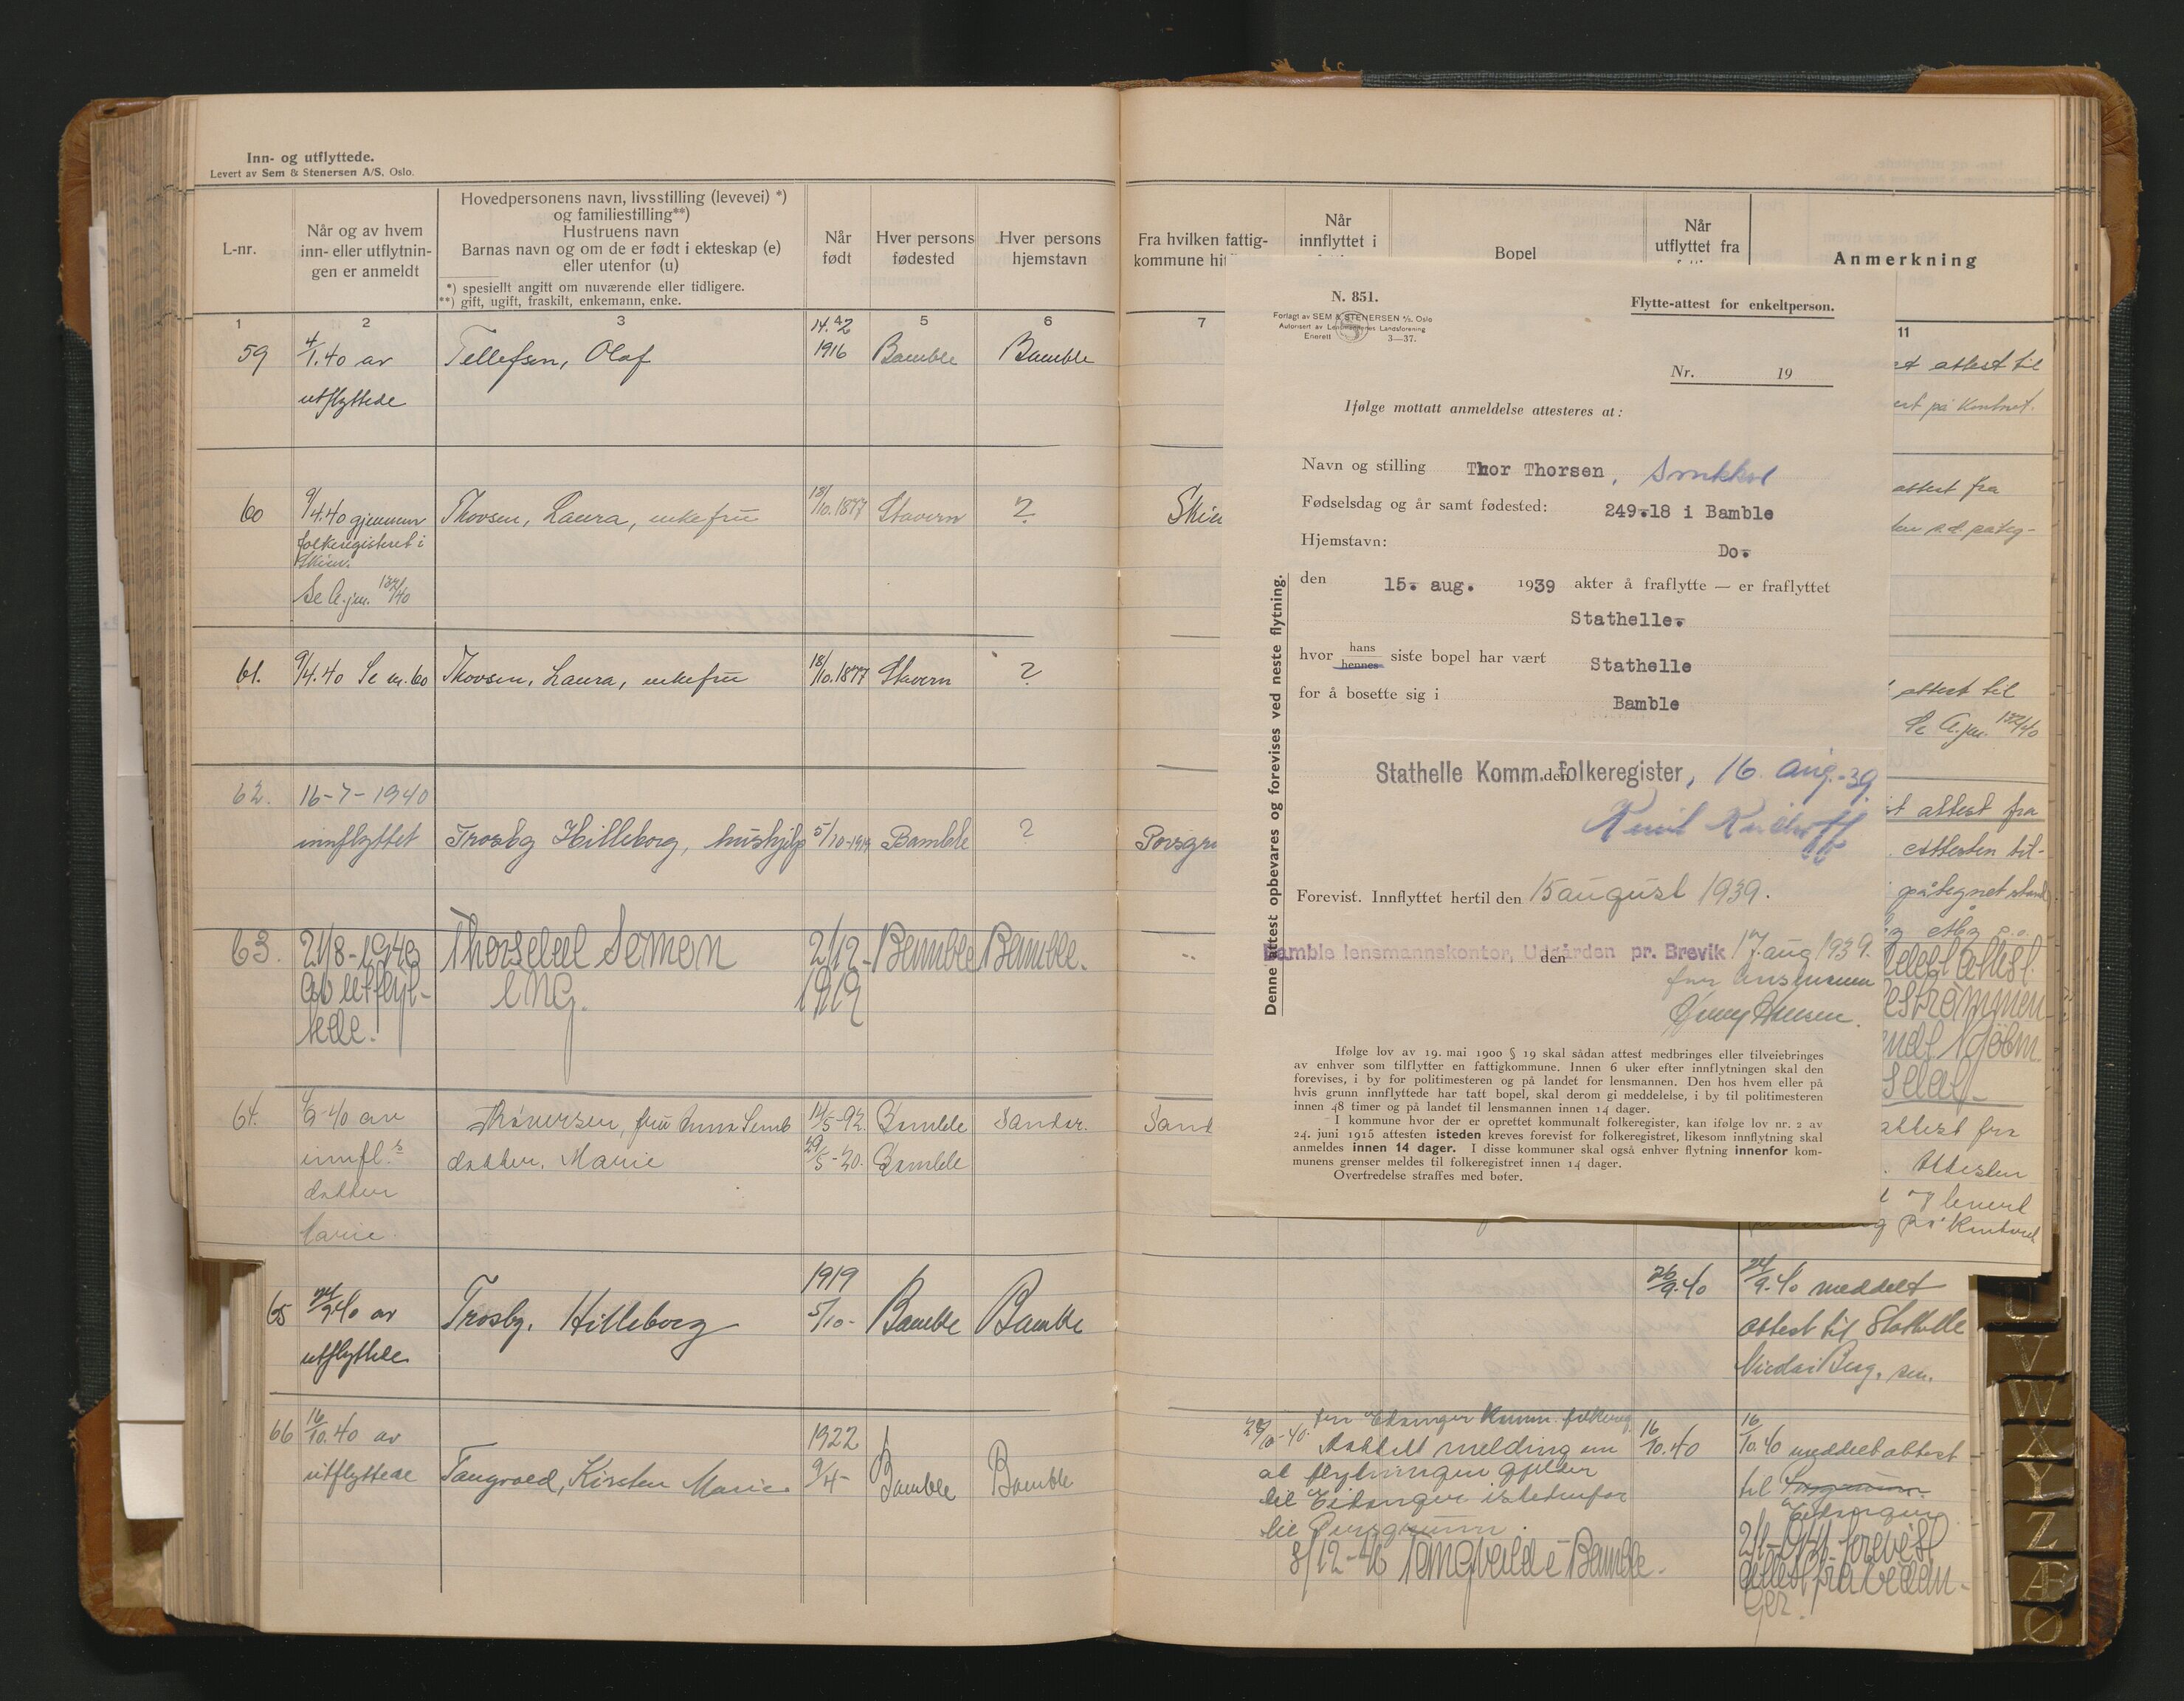 Inn- og utflyttede.
Levert av Sem & Stenersen A/S. Oslo.
L-nr.
Når og av hvem
inn- eller utflytnin-
gen er anmeldt
Hovedpersonens navn, livsstilling (levevei) *)
og familiestilling**)
Hustruens navn
Barnas navn og om de er født i ekteskap (e)
eller utenfor (u)
*) spesiellt angitt om nuværende eller tidligere.
**) gift, ugift, fraskilt, enkemann, enke.
Når
født
Hver persons
fødested
Hver persons
hjemstavn
1 2 3 5 6
59 4/1.40 av Tellefsen, Olaf 14. 2 1916 Bamble Bamble
utflyttede
60 9/4.40 gjennem Thorsen, Laura, enkefru 18/10.1877 Stavern ?
folkeregisteret i
Skien.
Se A.jnr. 132/40
61. 9/4.40 Se nr. 60 Thorsen, Laura, enkefru 18/10.1877 Stavern ?
62. 16-7-1940
innflyttet Trosby Hilleborg, hushjelp 5/10-1919 Bamble ?
63. 21/8-1940 Thorsdal Simon 2/12- Bamble Bamble.
av utflyt- ung. 1919
tede.
64. 9-40 av Thoresen, fru Anna 14/5-92. Bamble Sandar.
innfl. datter, Marie 29/5-20. Bamble
datter
Marie.
65 24/9.40 av Trosby, Hilleborg 1919 5/10- Bamble Bamble
utflyttede
66 16/10.40 av 1922
utflyttede Tangvald, Kirsten Marie 9/4- Bamble Bamble
Fra hvilken fattig-
kommune hit
Når
innflyttet i
Bopel
Når
utflyttet fra
Anmerkning
7
11
attest til
på kontoret.
Skie
attest fra
attest til
Se A.jnr. 132/40
Porsgr
attest fra
Attesten til-
påtegnet
Sand
attest fra
Attesten
og levert
på kontoret
N. 851.
Forlagt av SEM & STENERSEN A/S. Oslo
Autorisert av Lensmennenes Landsforening
Enerett 3—37.
Flytte-attest for enkeltperson.
Nr. 19
Ifølge mottatt anmeldelse attesteres at:
Navn og stilling Thor Thorsen,
Fødselsdag og år samt fødested: 249.18 i Bamble
Hjemstavn: Do.
den 15. aug. 1939 akter å fraflytte — er fraflyttet
Stathelle.
hvor hans hennes siste bopel har vært Stathelle
for å bosette sig i Bamble
Stathelle Komm. folkeregister, den 16. aug.-39.
Forevist. Innflyttet hertil den 15 august 1939.
Bamble lensmannskontor, Udgården pr. Brevik den 17. aug 1939.
for lensmannen
Hansen.
Denne attest opbevares og forevises ved neste flytning.
Ifølge lov av 19. mai 1900 § 19 skal sådan attest medbringes eller tilveiebringes
av enhver som tilflytter en fattigkommune. Innen 6 uker efter innflytningen skal den
forevises, i by for politimesteren og på landet for lensmannen. Den hos hvem eller på
hvis grunn innflyttede har tatt bopel, skal derom gi meddelelse, i by til politimesteren
innen 48 timer og på landet til lensmannen innen 14 dager.
I kommune hvor der er oprettet kommunalt folkeregister, kan ifølge lov nr. 2 av
24. juni 1915 attesten isteden kreves forevist for folkeregistret, likesom innflytning skal
anmeldes innen 14 dager. I disse kommuner skal også enhver flytning innenfor kom-
munens grenser meldes til folkeregistret innen 14 dager.
Overtredelse straffes med bøter.
26/9.40 24/9.40 meddelt
attest til Stathelle
Berg, sen.
fra Eidanger Komm. folkereg.
mottatt melding om 16/10.40 16/10.40 meddelt attest
at flytningen gjelder til Porsgrunn.
til Eidanger istedenfor Eidanger
til Porsgrunn.
8/12-40 Tangvald i Bamble.
forevist
attest fra Eidan-
ger.
U
V
W
X
Y
Z
Æ
Ø